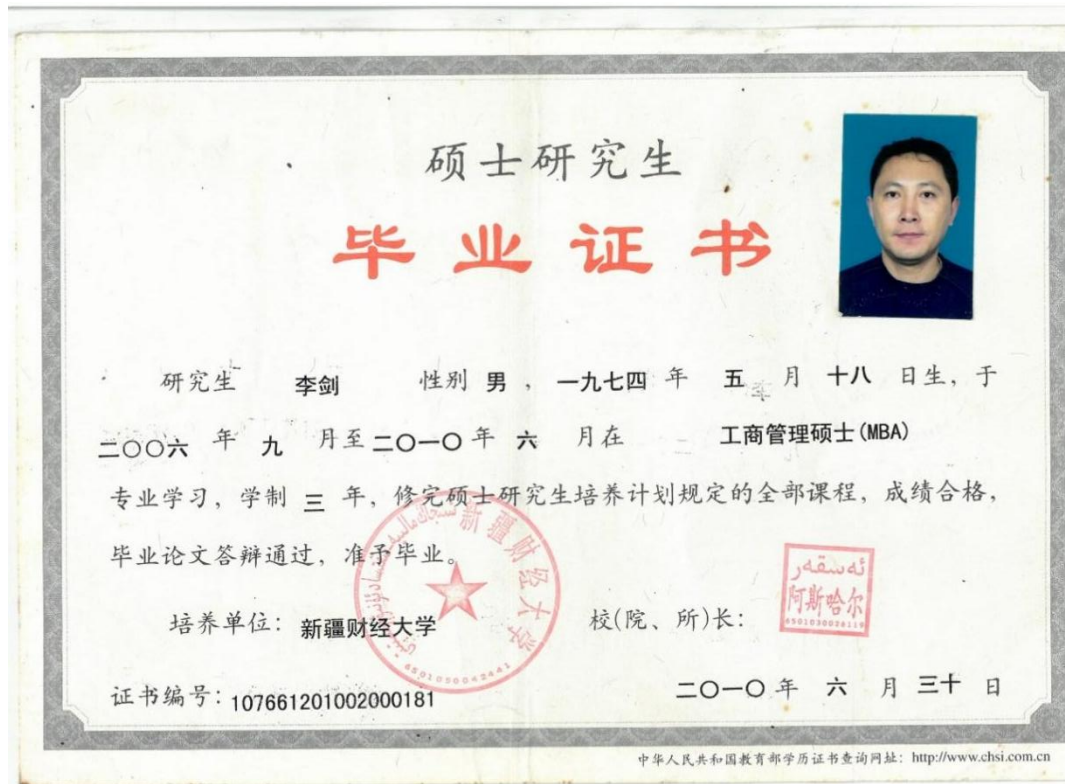 硕士研究生
毕业证书
研究生 李剑 性别 男 , 一九七四 年 五 月 十八 日生, 于
二〇〇六 年 九 月至 二〇一〇 年 六 月在 工商管理硕士(MBA)
专业学习, 学制 三 年, 修完硕士研究生培养计划规定的全部课程, 成绩合格,
毕业论文答辩通过, 准予毕业。
新疆财经大学
6501050042441
ئەسقەر
阿斯哈尔
培养单位: 新疆财经大学 校(院、所)长:
证书编号: 107661201002000181 二〇一〇 年 六 月 三十 日
中华人民共和国教育部学历证书查询网址: http://www.chsi.com.cn